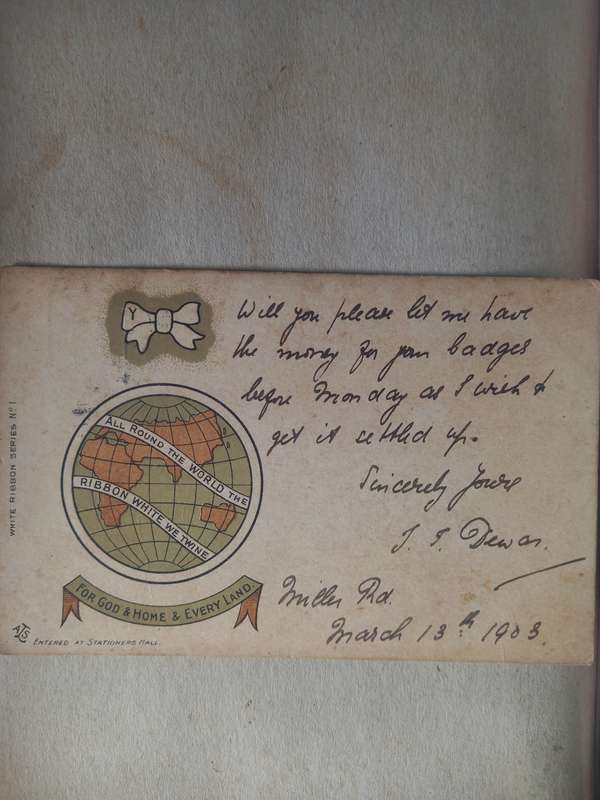 WHITE RIBBON SERIES Nº 1
Y
Will you please let me have
the money for your badges
before Monday as I wish to
get it settled up.
Sincerely Yours
Dewar.
Miller Rd.
March 13th 1903.
ALL ROUND THE WORLD THE
RIBBON WHITE WE TWINE
FOR GOD & HOME & EVERY LAND.
ENTERED AT STATIONERS HALL.